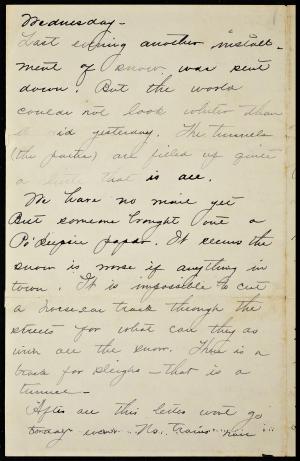 Wednesday -
Last evening another "install-
ment of snow was sent
down. But the world
couldn't not look whiter than
it did yesterday. The tunnels
(the paths) are filled up quite
a little that is all.
We have no mail yet
But someone brought out a
Po'keepsie paper. It seems the
snow is worse if anything in
town. It is impossible to cut
a horsecar track through the
streets for what can they do
with all the snow. There is a
track for sleighs - that is a
tunnel -
After all this letter wont go
today even. No trains have